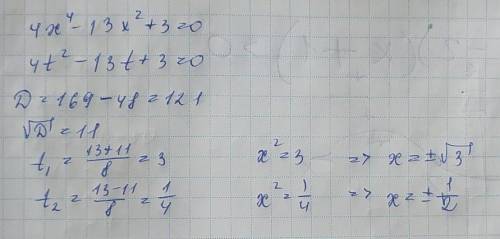 4x⁴-13x²+3=0
4t²-13t+3=0
D=169-48=121
√D=11
t₁ = (13+11)/8 = 3    x²=3  => x=±√3
t₂ = (13-11)/8 = 1/4    x²=1/4  => x=±1/2